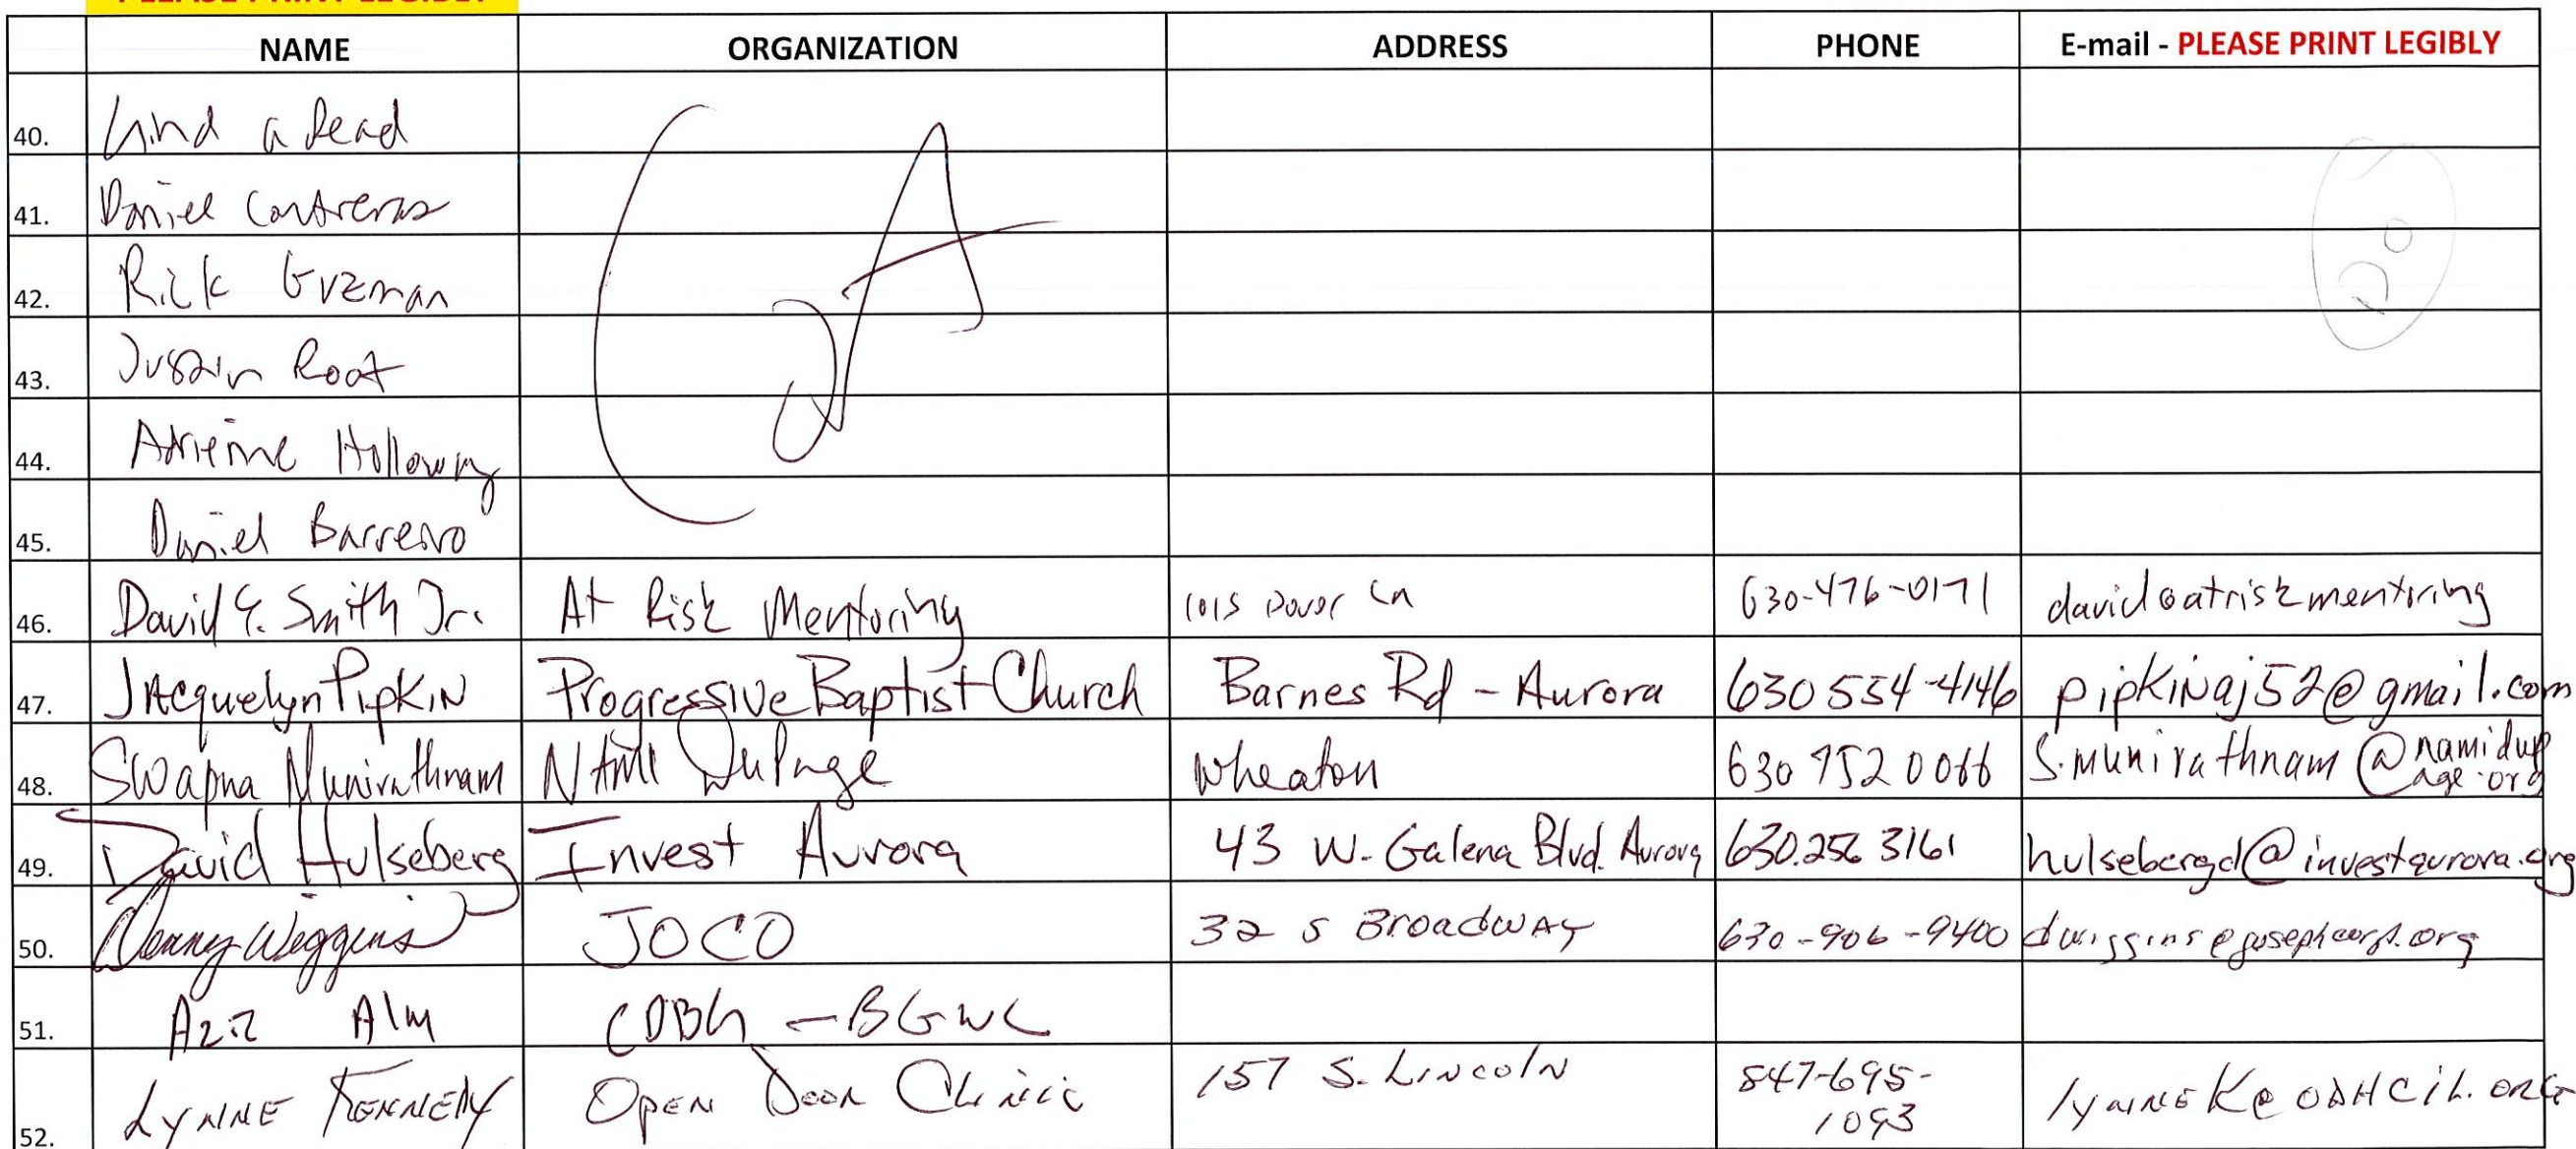 PLEASE PRINT LEGIBLY
NAME ORGANIZATION ADDRESS PHONE E-mail - PLEASE PRINT LEGIBLY
40. Read
41. Daniel Contreras
42. Rick Guzman
43. Justin Root
44. Adrienne Holloway
45. Daniel Barreiro
46. David E. Smith Jr. At Risk Mentoring 1015 Dover Ln 630-476-0171 david@atriskmentoring
47. Jacquelyn Pipkin Progressive Baptist Church Barnes Rd - Aurora 630 554-4146 pipkinaj52@gmail.com
48. Swapna Munirathnam NAMI DuPage Wheaton 630 752 0066 S.munirathnam@namidupage.org
49. David Hulseberg Invest Aurora 43 W. Galena Blvd. Aurora 630.256 3161 hulsebergd@investaurora.org
50. Denny Wiggins JOCO 32 S Broadway 630-906-9400 dwiggins@josephcorps.org
51. Aziz Alm CDBG - BGWC
52. Lynne Kennedy Open Door Clinic 157 S. Lincoln 847-695-1093 lynneK@ODHCIL.ORG